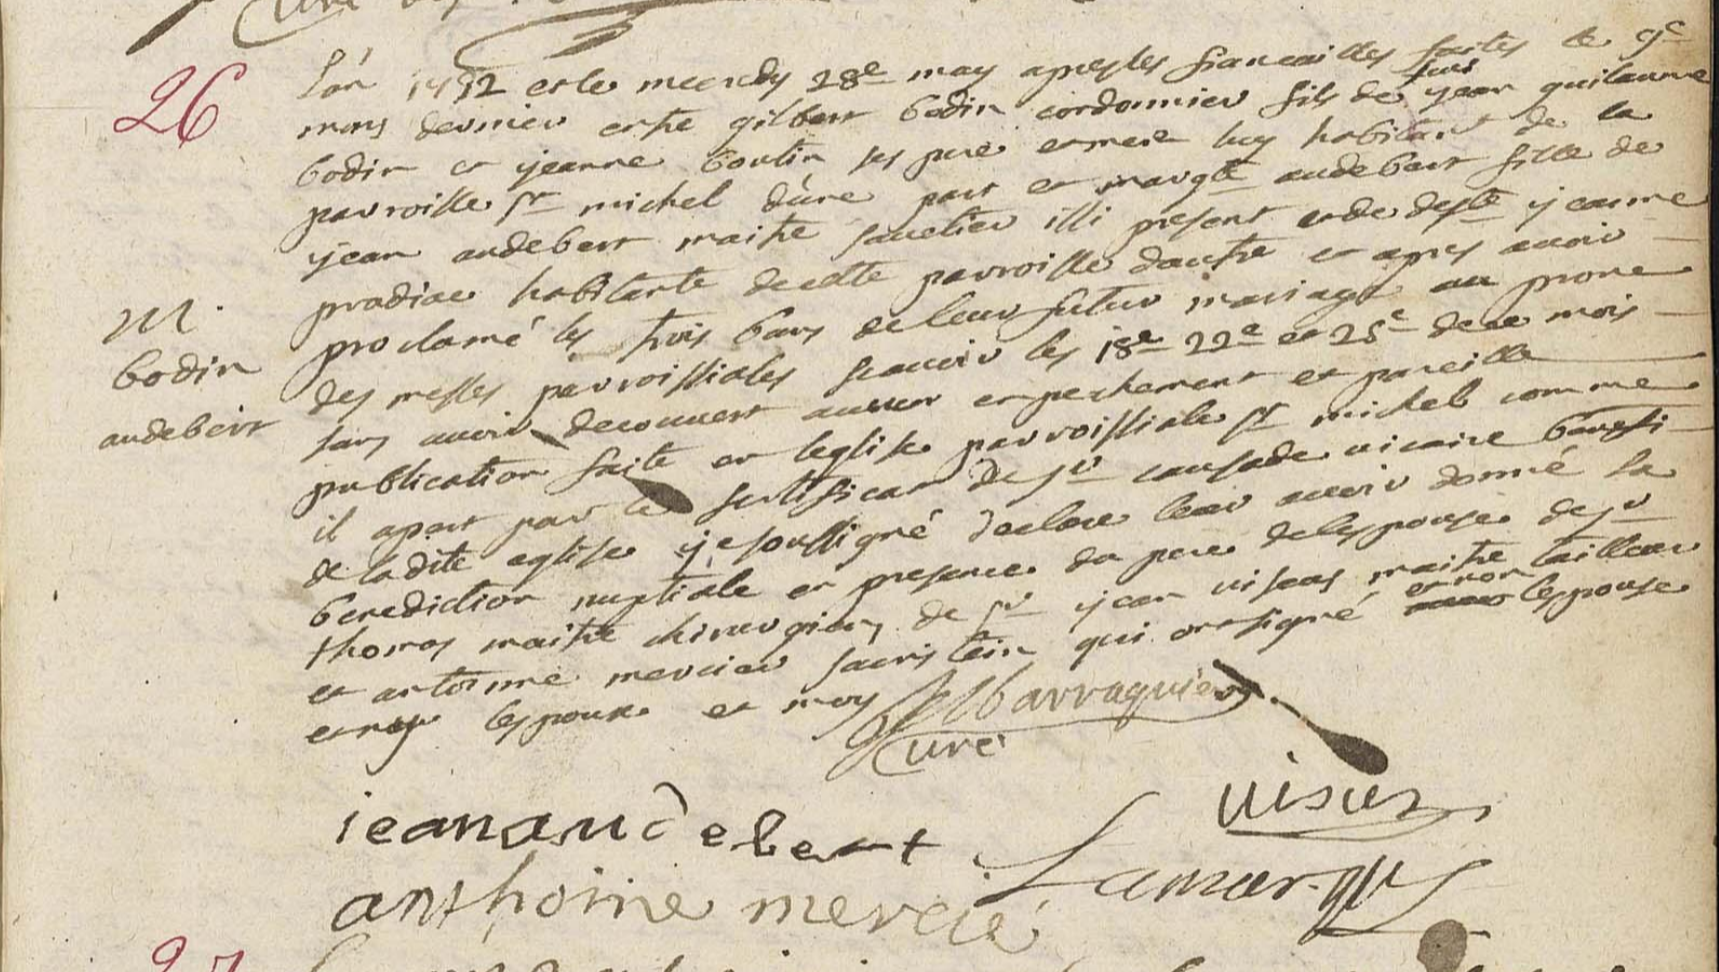 curé
26
L'an 1752 et le mecredy 28e may apres les fiancailles faites le 9e
mars dernier entre gilbert bodin cordonnier fils de feus jean guilaume
bodin et jeanne boutin ses pere et mere luy habitant de la
parroisse st michel d'une part et margte audebert fille de
jean audebert maitre savetier illi present et de defte jeanne
pradiac habitante de cette parroisse dautre et apres avoir
M.
bodin
audebert
proclamé les trois bans de leur futur mariage au prone
des messes parroissiales scavoir les 18e 22e et 25e de ce mois
sans avoir decouvert aucun enpechement et pareille
publication faite en leglise parroissiale st michel comme
il apert par le sertificat de sr causade vicaire
de ladite eglise je soussigné declare leur avoir donné la
benediction nuptiale en presence du pere de lespouse de sr
thomas maitre chirurgien, de sr jean viseas maitre tailleur
et antoinne mercier sacristein qui ont signé et non lespouse
et non lespoux et moy
Barraquier
curé
jean audebert
viseus
Lamarque
anthoine mercié
27